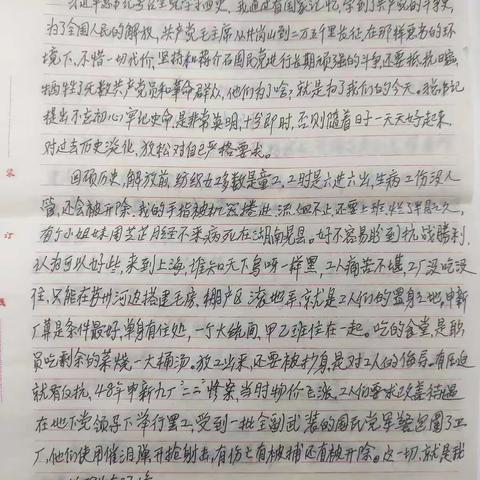 为了全国人民的解放，共产党毛主席从井岗山到二万五千里长征，在那样恶劣的环
境下，不惜一切代价，坚持和蒋介石国民党进行长期顽强的斗争，还要抵抗日寇，
牺牲了无数共产党员和革命群众，他们为了啥？就是为了我们的今天。
提出不忘初心，牢记使命，是非常英明，十分即时，否则随着日子一天天好起来，
对过去历史淡化，放松对自己严格要求。
回顾历史，解放前，纺织女工多数是童工，工时是六进六出，生病工伤没人
管，还会被开除。我的手指被机器捲进，流血不止，还要上班，
有个小姐妹因 病死在湖南晃县。好不容易盼到抗战胜利，
认为可以好些，来到上海，谁知天下乌呀一样黑，工人痛苦不堪，工厂没吃没
住，只能在苏州河边搭建毛房，棚户区 滚地弄，就是工人们的置身之地，申新
厂算是条件最好，单身有住处，一个大统间，甲乙班住在一起。吃的食堂，是职
员吃剩余的菜烧一大桶汤。放工出来，还要被抄身，是对工人的侮辱。有压迫
就有反抗，48年申新九厂“二二”惨案，当时物价飞涨，工人们要求改善待遇
在地下党领导下举行罢工，受到一批全副武装的国民党军警包围了工
厂，他们使用催泪弹开抢射击，有伤亡有被捕还有被开除。这一切，就是我